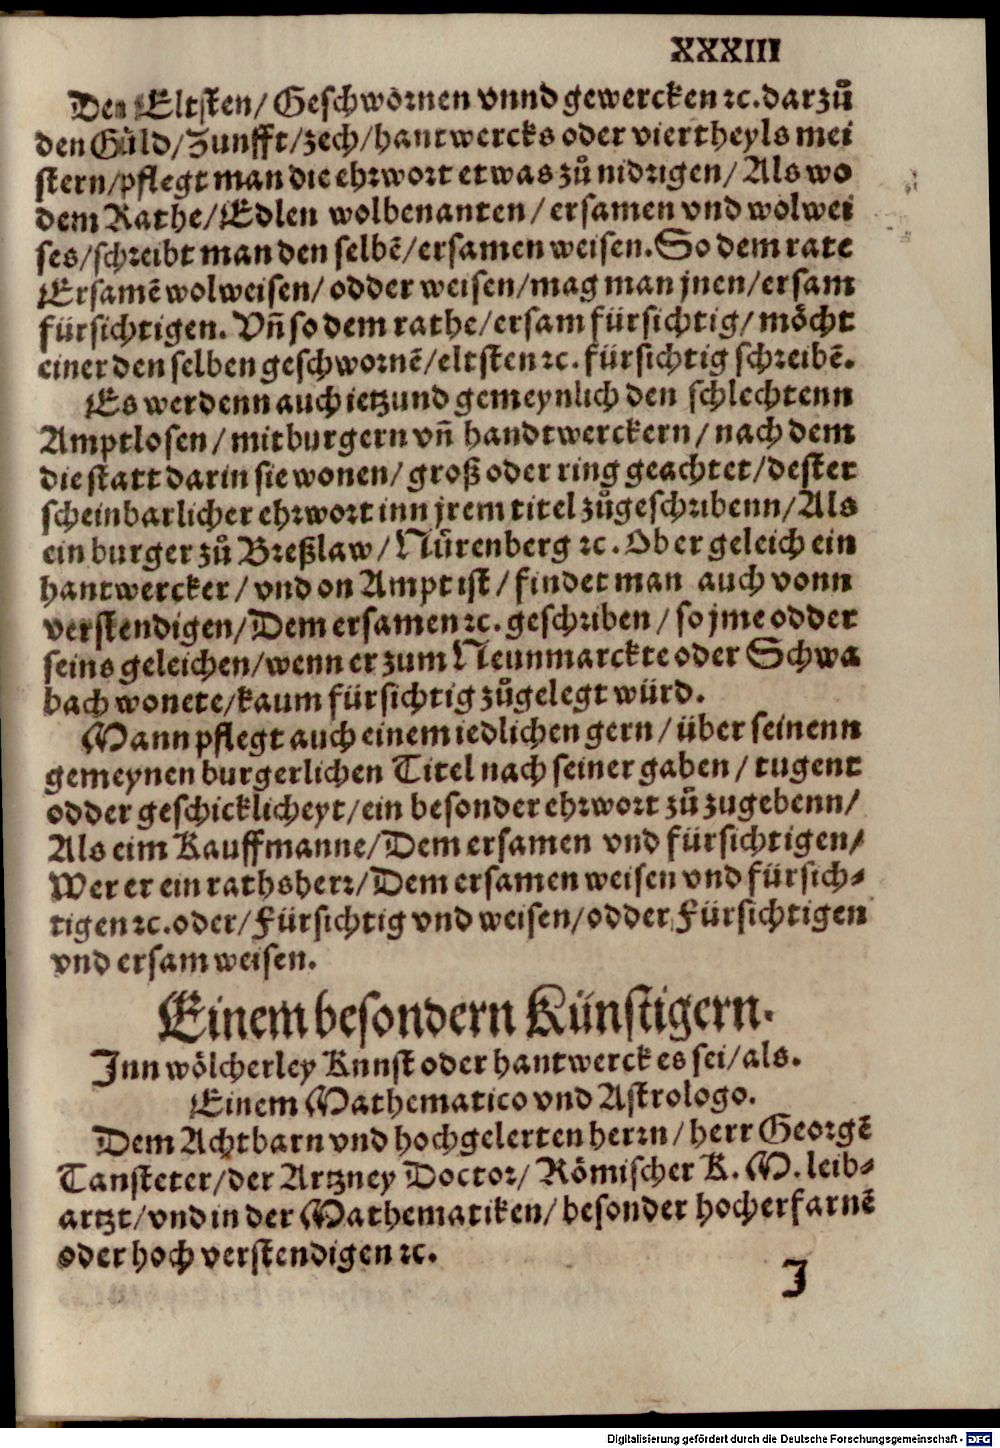 XXXIII
Den Eltsten/ Geschwornen vnnd gewercken ꝛc. darzů
den Gůld/Zunfft/zech/hantwercks oder viertheyls mei
stern/pflegt man die ehrwort etwas zů nidrigen/ Als wo
dem Rathe/Edlen wolbenanten/ ersamen vnd wolwei
ses/schreibt man den selbē/ersamen weisen. So dem rate
Ersamē wolweisen/ odder weisen/mag man jnen/ersam
fürsichtigen. Vn̄ so dem rathe/ersam fürsichtig/ möcht
einer den selben geschwornē/eltsten ꝛc. fürsichtig schreibē.
Es werdenn auch ietzund gemeynlich den schlechtenn
Amptlosen/ mitburgern vn̄ handtwerckern/ nach dem
die statt darin sie wonen/ groß oder ring geachtet/dester
scheinbarlicher ehrwort inn jrem titel zůgeschribenn/Als
ein burger zů Breßlaw/ Nürenberg ꝛc. Ob er geleich ein
hantwercker/ vnd on Ampt ist/ findet man auch vonn
verstendigen/Dem ersamen ꝛc. geschriben/ so jme odder
seins geleichen/wenn er zum Neunmarckte oder Schwa
bach wonete/kaum fürsichtig zůgelegt würd.
Mann pflegt auch einem iedlichen gern/ über seinenn
gemeynen burgerlichen Titel nach seiner gaben/ tugent
odder geschicklicheyt/ein besonder ehrwort zů zugebenn/
Als eim Kauffmanne/Dem ersamen vnd fürsichtigen/
Wer er ein rathsherr/Dem ersamen weisen vnd fürsich-
tigen ꝛc. oder/Fürsichtig vnd weisen/odder Fürsichtigen
vnd ersam weisen.
Einem besondern Künstigern.
Inn wölcherley Knnst oder hantwerck es sei/als.
Einem Mathematico vnd Astrologo.
Dem Achtbarn vnd hochgelerten herrn/ herr Georgē
Tansteter/der Artzney Doctor/ Römischer K. M. leib-
artzt/vnd in der Mathematiken/ besonder hocherfarnē
oder hoch verstendigen ꝛc.
J
Digitalisierung gefördert durch die Deutsche Forschungsgemeinschaft - DFG